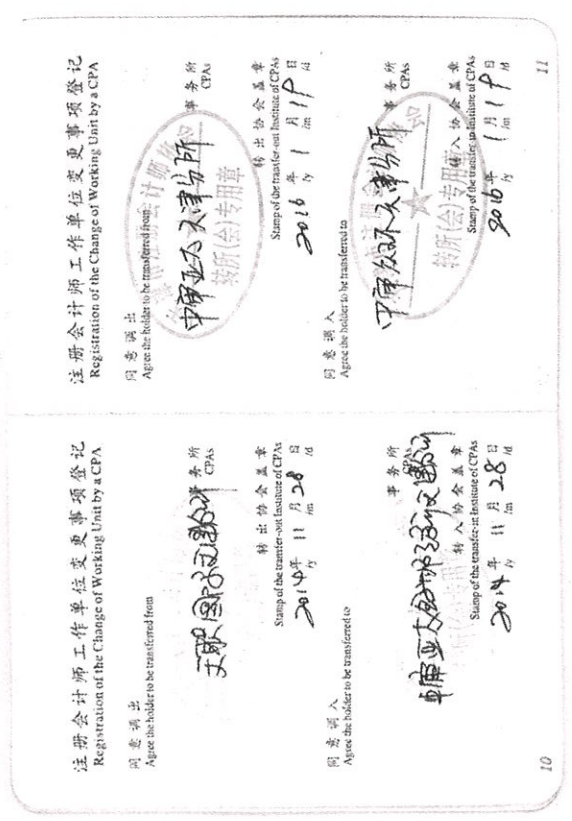 注册会计师工作单位变更事项登记
Registration of the Change of Working Unit by a CPA
同意调出
Agree the holder to be transferred from
事务所
CPAs
转出协会盖章
Stamp of the transfer-out Institute of CPAs
2014年 11月 28日
/y /m /d
同意调入
Agree the holder to be transferred to
事务所
CPAs
转入协会盖章
Stamp of the transfer-in Institute of CPAs
2014年 11月 28日
/y /m /d
10
注册会计师工作单位变更事项登记
Registration of the Change of Working Unit by a CPA
同意调出
Agree the holder to be transferred from
中审亚太天津分所
事务所
CPAs
转所(会)专用章
转出协会盖章
Stamp of the transfer-out Institute of CPAs
2016年 1月 19日
/y /m /d
同意调入
Agree the holder to be transferred to
中审众环天津分所
事务所
CPAs
转所(会)专用章
转入协会盖章
Stamp of the transfer-in Institute of CPAs
2016年 1月 19日
/y /m /d
11